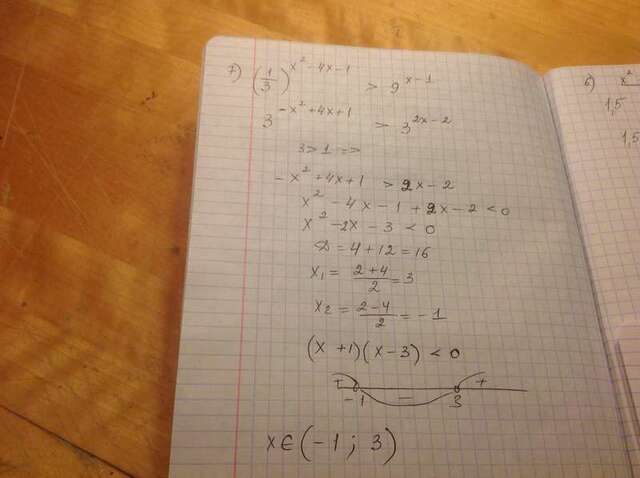 7) (1/3)^(x²-4x-1) > 9^(x-1)
3^(-x²+4x+1) > 3^(2x-2)
3>1 =>
-x²+4x+1 > 2x-2
x²-4x-1+2x-2<0
x²-2x-3<0
D=4+12=16
x₁=(2+4)/2=3
x₂=(2-4)/2=-1
(x+1)(x-3)<0
+ - +
-1 3
x∈(-1; 3)
6) x²
1,5
1,5